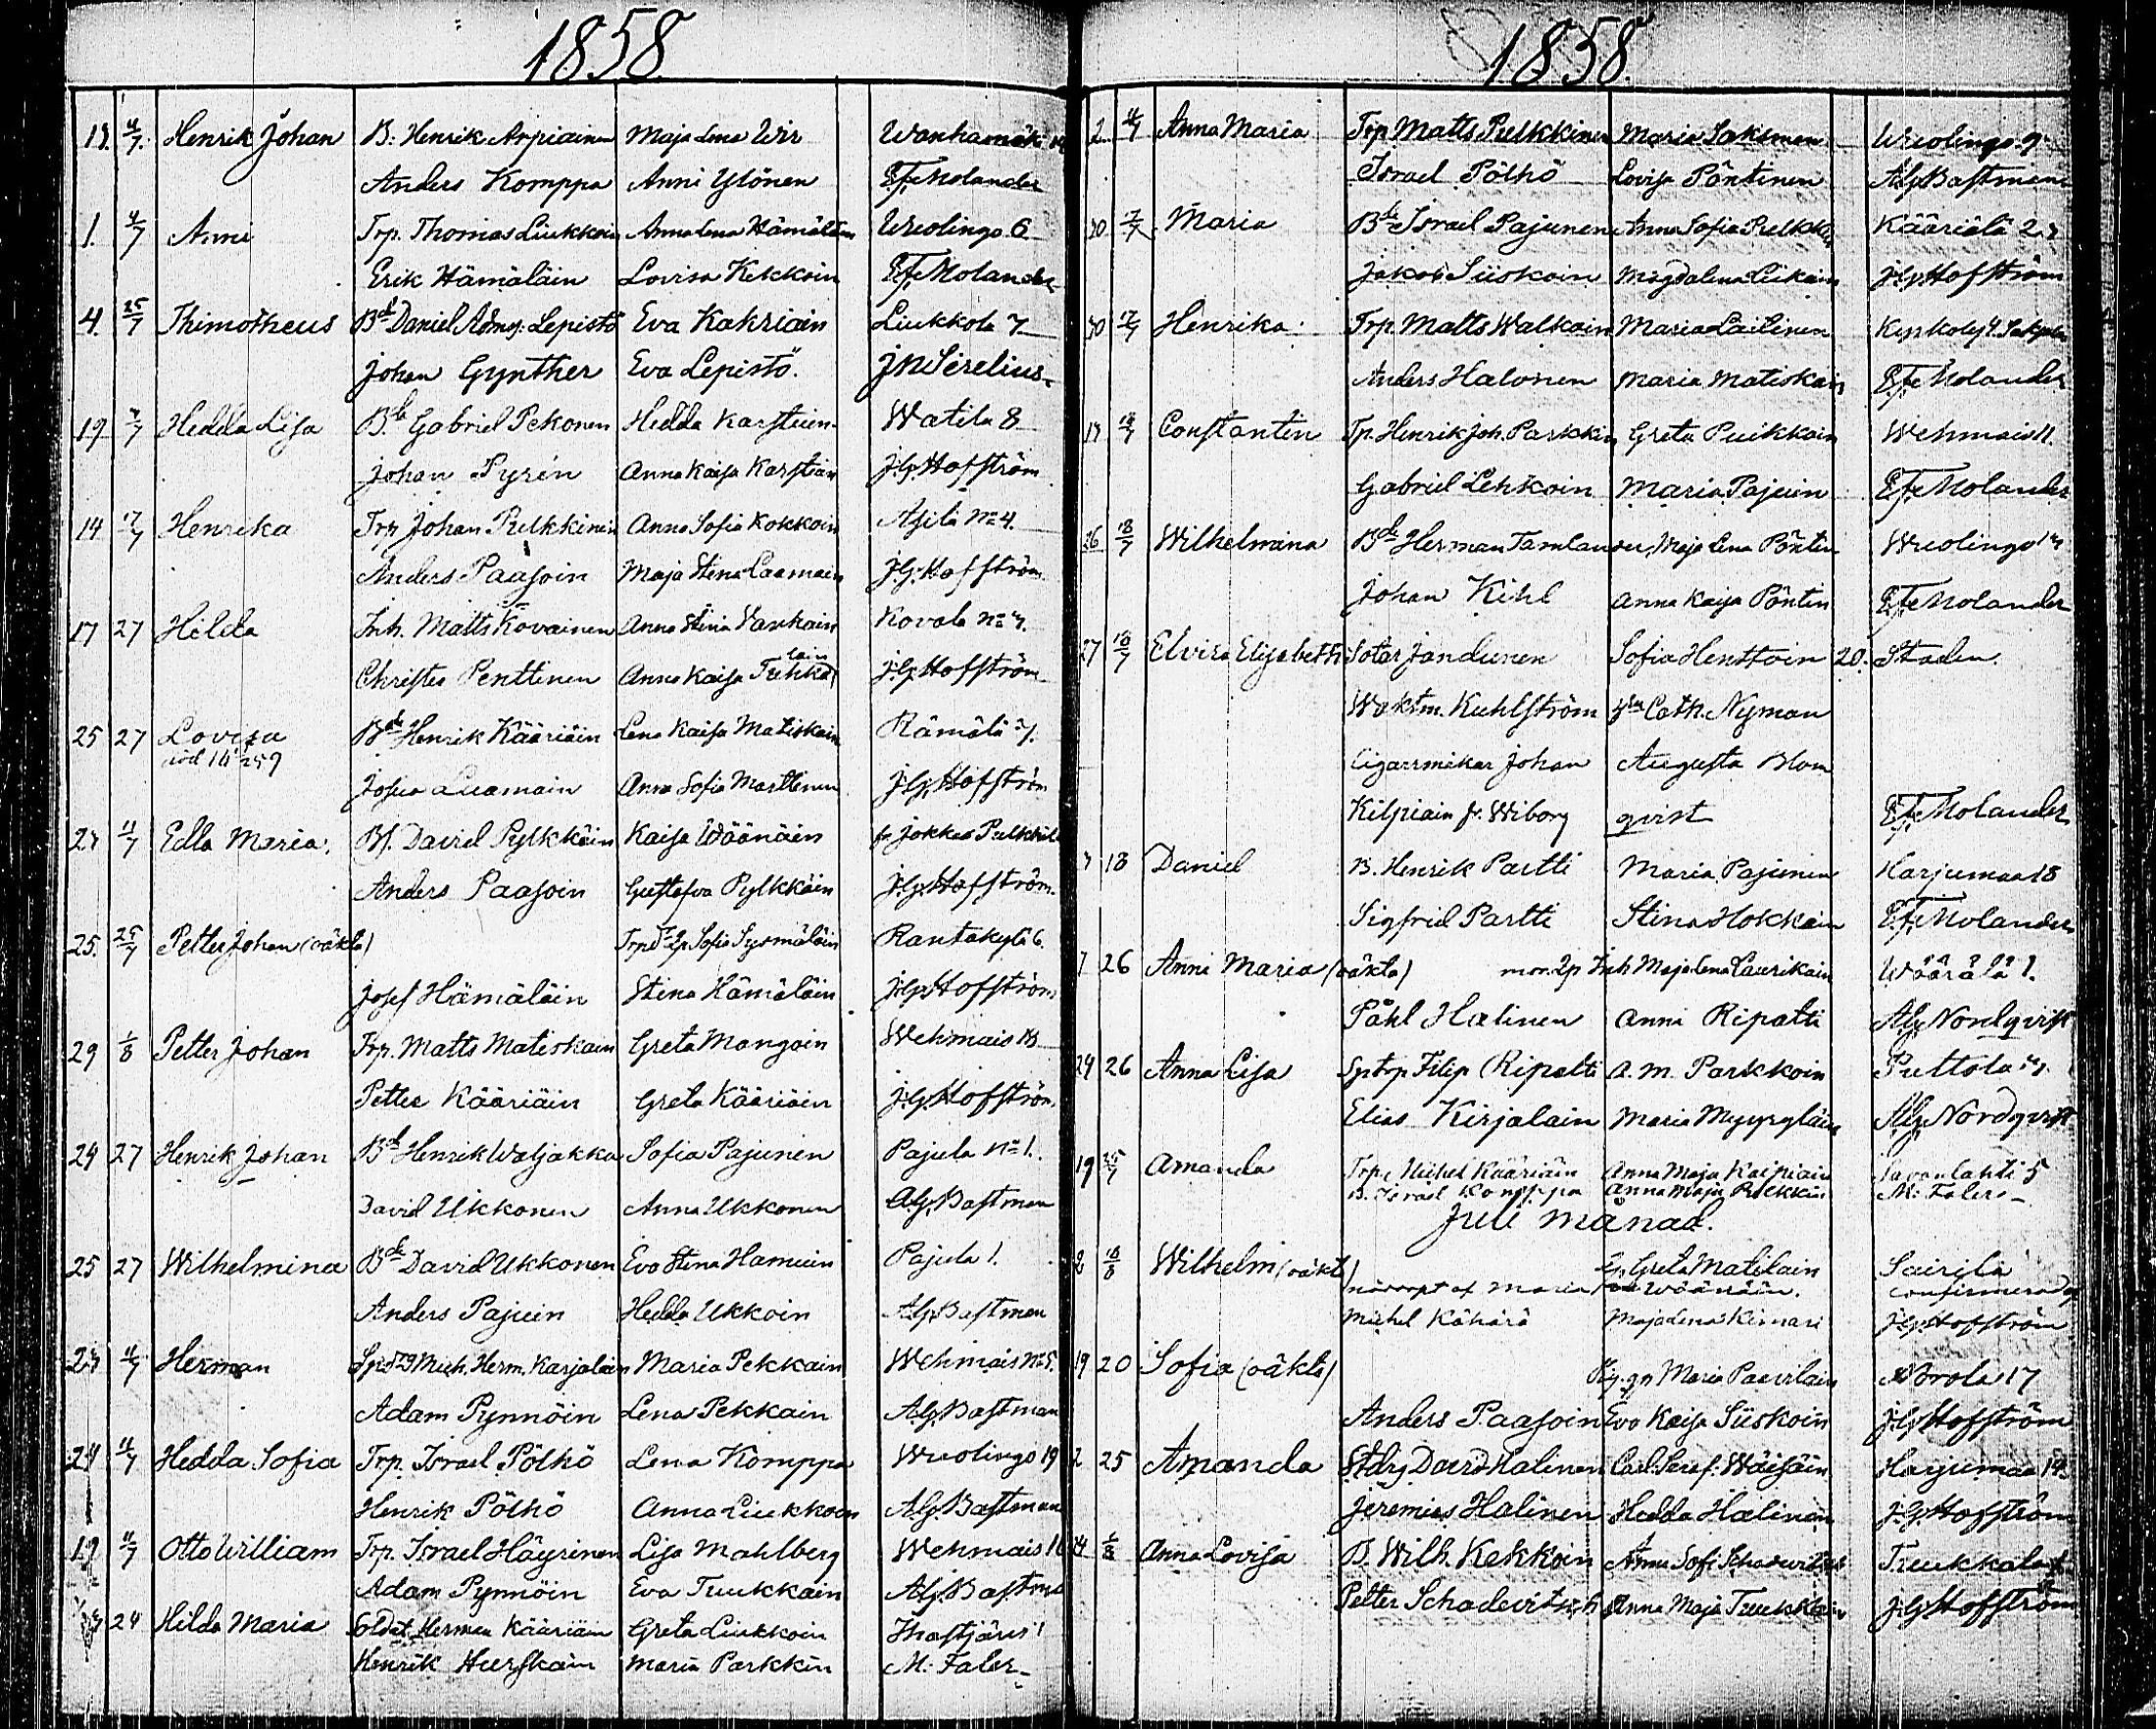 1858
13. 4/7. Henrik Johan B. Henrik Arpiainen Maja Lena Wir Wanhamäki
Anders Komppa Anni Ylönen E. F. Molander
1. 4/7 Anni Trp. Thomas Liukkoin Anna Lena Hämäläin Wuolingo 6
Erik Hämäläin Lovisa Kekkoin E. F. Molander
4. 25/7 Thimotheus Bd Daniel Adamss. Lepistö Eva Kakriain Liukkola 7
Johan Gynther Eva Lepistö. J N Sirelius
19 4/7 Hedda Lisa Bd. Gabriel Pekonen Hedda Karstuen Watila 8
Johan Pyrén Anna Kaisa Karstian J. G. Hoffström
14 17/7 Henrika Trp Johan Pulkkinen Anna Sofia Kokkoin Asila No 4.
Anders Paasoin Maja Stina Laamain J. G. Hoffström
17 27 Hilda Inh. Matts Kovainen Anna Stina Vankain Kovala No 7.
Christer Penttinen Anna Kaisa Tuhkalain J. G. Hoffström
25 27 Lovisa Bd Henrik Kääriäin Lena Kaisa Matiskain Rämälä 7.
död
Josua Luamain Anna Sofia Marttinen J. G. Hoffström
27 11/7 Edla Maria. Bs. David Pylkkäin Kaisa Wäänäin fr. Jokkas
Anders Paasoin Gustafva Pylkkäin J. G. Hoffström.
25. 25/7 Petter Johan (oäkta) Trpd. Lp. Sofia Sysmäläin Rantakylä 6.
Josef Hämäläin Stina Hämäläin J. G. Hoffström
29 1/8 Petter Johan Trp. Matts Matiskain Greta Mangoin Wehmais 18
Petter Kääriäin Greta Kääriäin J. G. Hoffström.
24 27 Henrik Johan Bd Henrik Waljakka Sofia Pajunen Pajula No 1.
David Ukkonen Anna Ukkonen Alf. Bastman
25 27 Wilhelmina Bd David Ukkonen Eva Stina Hamuin Pajula 1.
Anders Pajuin Hedda Ukkoin Alf. Bastman
27 11/7 Herman Mich. Herm. Karjalain Maria Pekkain Wehmais No 5.
Adam Pynnöin Lena Pekkain Alf. Bastman
24 11/7 Hedda Sofia Trp. Israel Pölhö Lena Komppa Wuolingo 19
Henrik Pölhö Anna Liukkoin Alf. Bastman
19 11/7 Otto William Trp. Israel Häyrinen Lisa Mahlberg Wehmais
Adam Pynnöin Eva Tuukkain Alf. Bastm
24 Hilda Maria Soldat Herman Kääriäin Greta Liukkoin Ihastjärvi 1
Henrik Hurskain Maria Parkkin M. Faler
1858.
2 4/7 Anna Maria Trp Matts Pulkkinen Maria Saksman Wuolingo 9
Israel Pölhö Lovisa Pöntinen Alf. Bastman
30 17/7 Maria Bd Israel Pajunen Anna Sofia Pulkki Kääriälä 2
Jakob Siiskoin Magdalena Liikain J. G. Hoffström
30 17/7 Henrika Trp. Matts Walkoin Maria Lailinen
Anders Halonen Maria Matiskain E. F. Molander
17 18/7 Constantin Tp. Henrik Joh. Parkkin Greta Puikkoin Wehmais 11.
Gabriel Lehkoin Maria Pajuin E. F. Molander
26 18/7 Wilhelmina Bd Herman Tamlander, Maja Lena Pöntin Wuolingo 17
Johan Kihl Anna Kaisa Pöntin E. F. Molander
27 18/7 Elvira Elisabeth Sotar Jandunen Sofia Henttoin 20. Staden.
Waktm. Kuhlström Cath. Nyman
Cigarrmakar Johan Augusta Blom
Kilpiain fr. Wiborg qvist E. F. Molander
7 18 Daniel B. Henrik Partti Maria Pajunen Harjumaa 18
Sigfrid Partti Stina Hokkain E. F. Molander
7 26 Anni Maria (oäkta) mor. Lp Inh Maja Lena Laurikain Wäärälä 1.
Påhl Halinen Anni Ripatti Alf. Nordqvist
24 26 Anna Lisa Sptrp Filip Ripatti A. M. Parkkoin Puttola 7.
Elias Kirjalain Maria Myyryläin Alf. Nordqvist
19 25/7 Amanda Trp. Michel Kääriäin Anna Maja Kalpiain Savonlahti 5
B. Israel Komppa Anna Maja Pulkkin M. Faler
Juli månad.
2 18/8 Wilhelm (oäkta) Lp Greta Matilain Sairila
Maria Wäänäin. confirmerad
Michel Kähärä Maja Lena Kinnari J. G. Hoffström
19 20 Sofia (oäkta) Pig. qn Maria Paavilain Norola 17
Anders Paasoin Eva Kaisa Siiskoin J. G. Hoffström
2 25 Amanda Stdrg David Halinen Carl. Seraf. Wäisäin Harjumaa 14.
Jeremias Halinen Hedda Halinen J. G. Hoffström
24 1/8 Anna Lovisa B. Wilh. Kekkoin Anna Sofi Schadevitsch Tuukkala
Petter Schadevitsch Anna Maja Tuukkain J. G. Hoffström